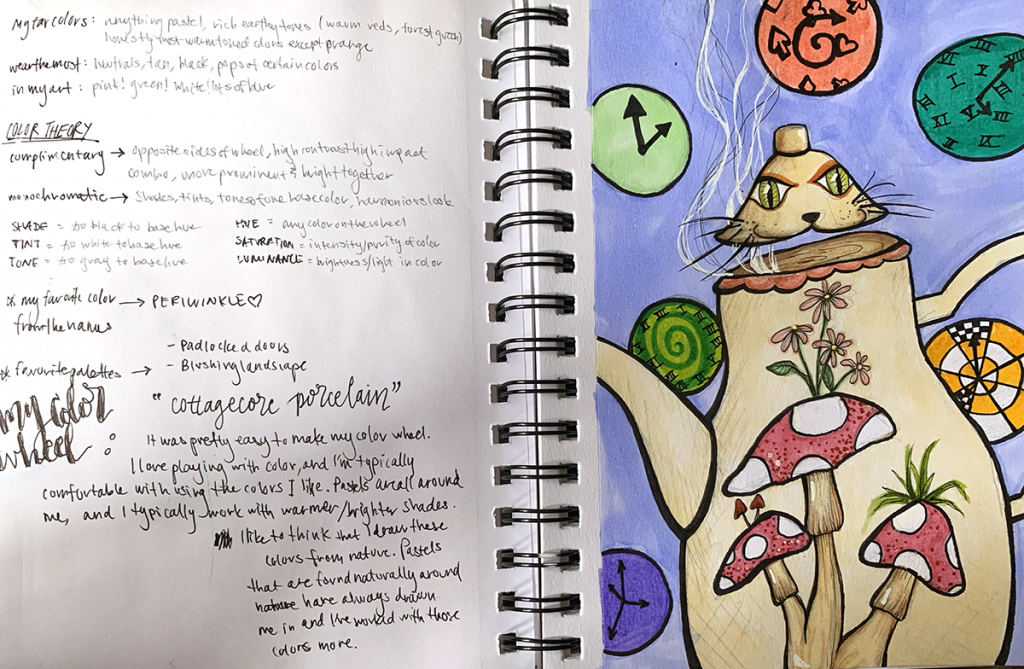 My fav colors: anything pastel, rich earthy tones (warm reds, forest green)
honestly most warm toned colors except orange
wear the most: neutrals, tan, black, pops of certain colors
in my art: pink! green! white! lots of blue
COLOR THEORY
complimentary → opposite sides of wheel, high contrast high impact
combo, more prominent & bright together
monochromatic → Shades, tints, tones of one base color, harmonious look
SHADE = black to base hue HUE = any color on the wheel
TINT = white to base hue SATURATION = intensity/purity of color
TONE = gray to base hue LUMINANCE = brightness/light in color
* my favorite color → PERIWINKLE ♡
from the names
- Padlocked doors
* favourite palettes → - Blushing landscape
my color
wheel:
"cottagecore porcelain"
It was pretty easy to make my color wheel.
I love playing with color, and I'm typically
comfortable with using the colors I like. Pastels are all around
me, and I typically work with warmer/brighter shades.
I like to think that I draw these
colors from nature. Pastels
that are found naturally around
have always drawn
me in and I've worked with those
colors more.